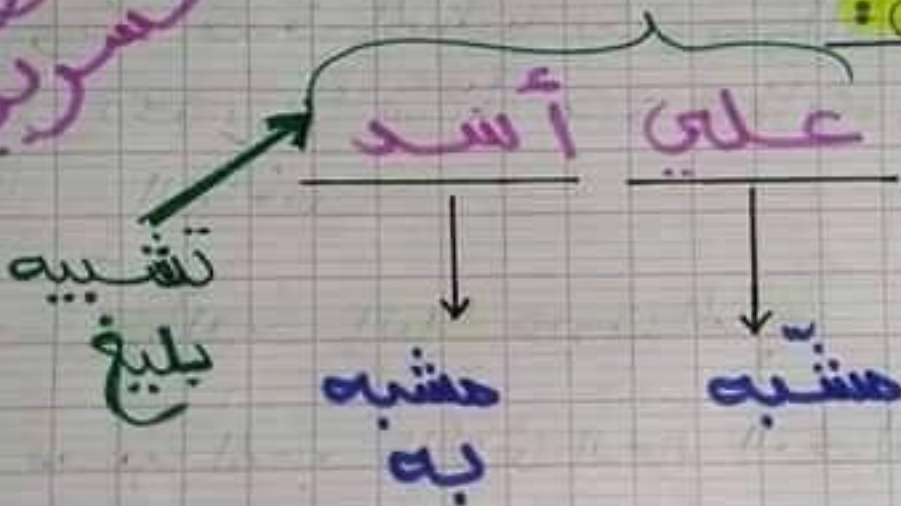 علي أسد
مشبّه
مشبه
به
تشبيه
بليغ